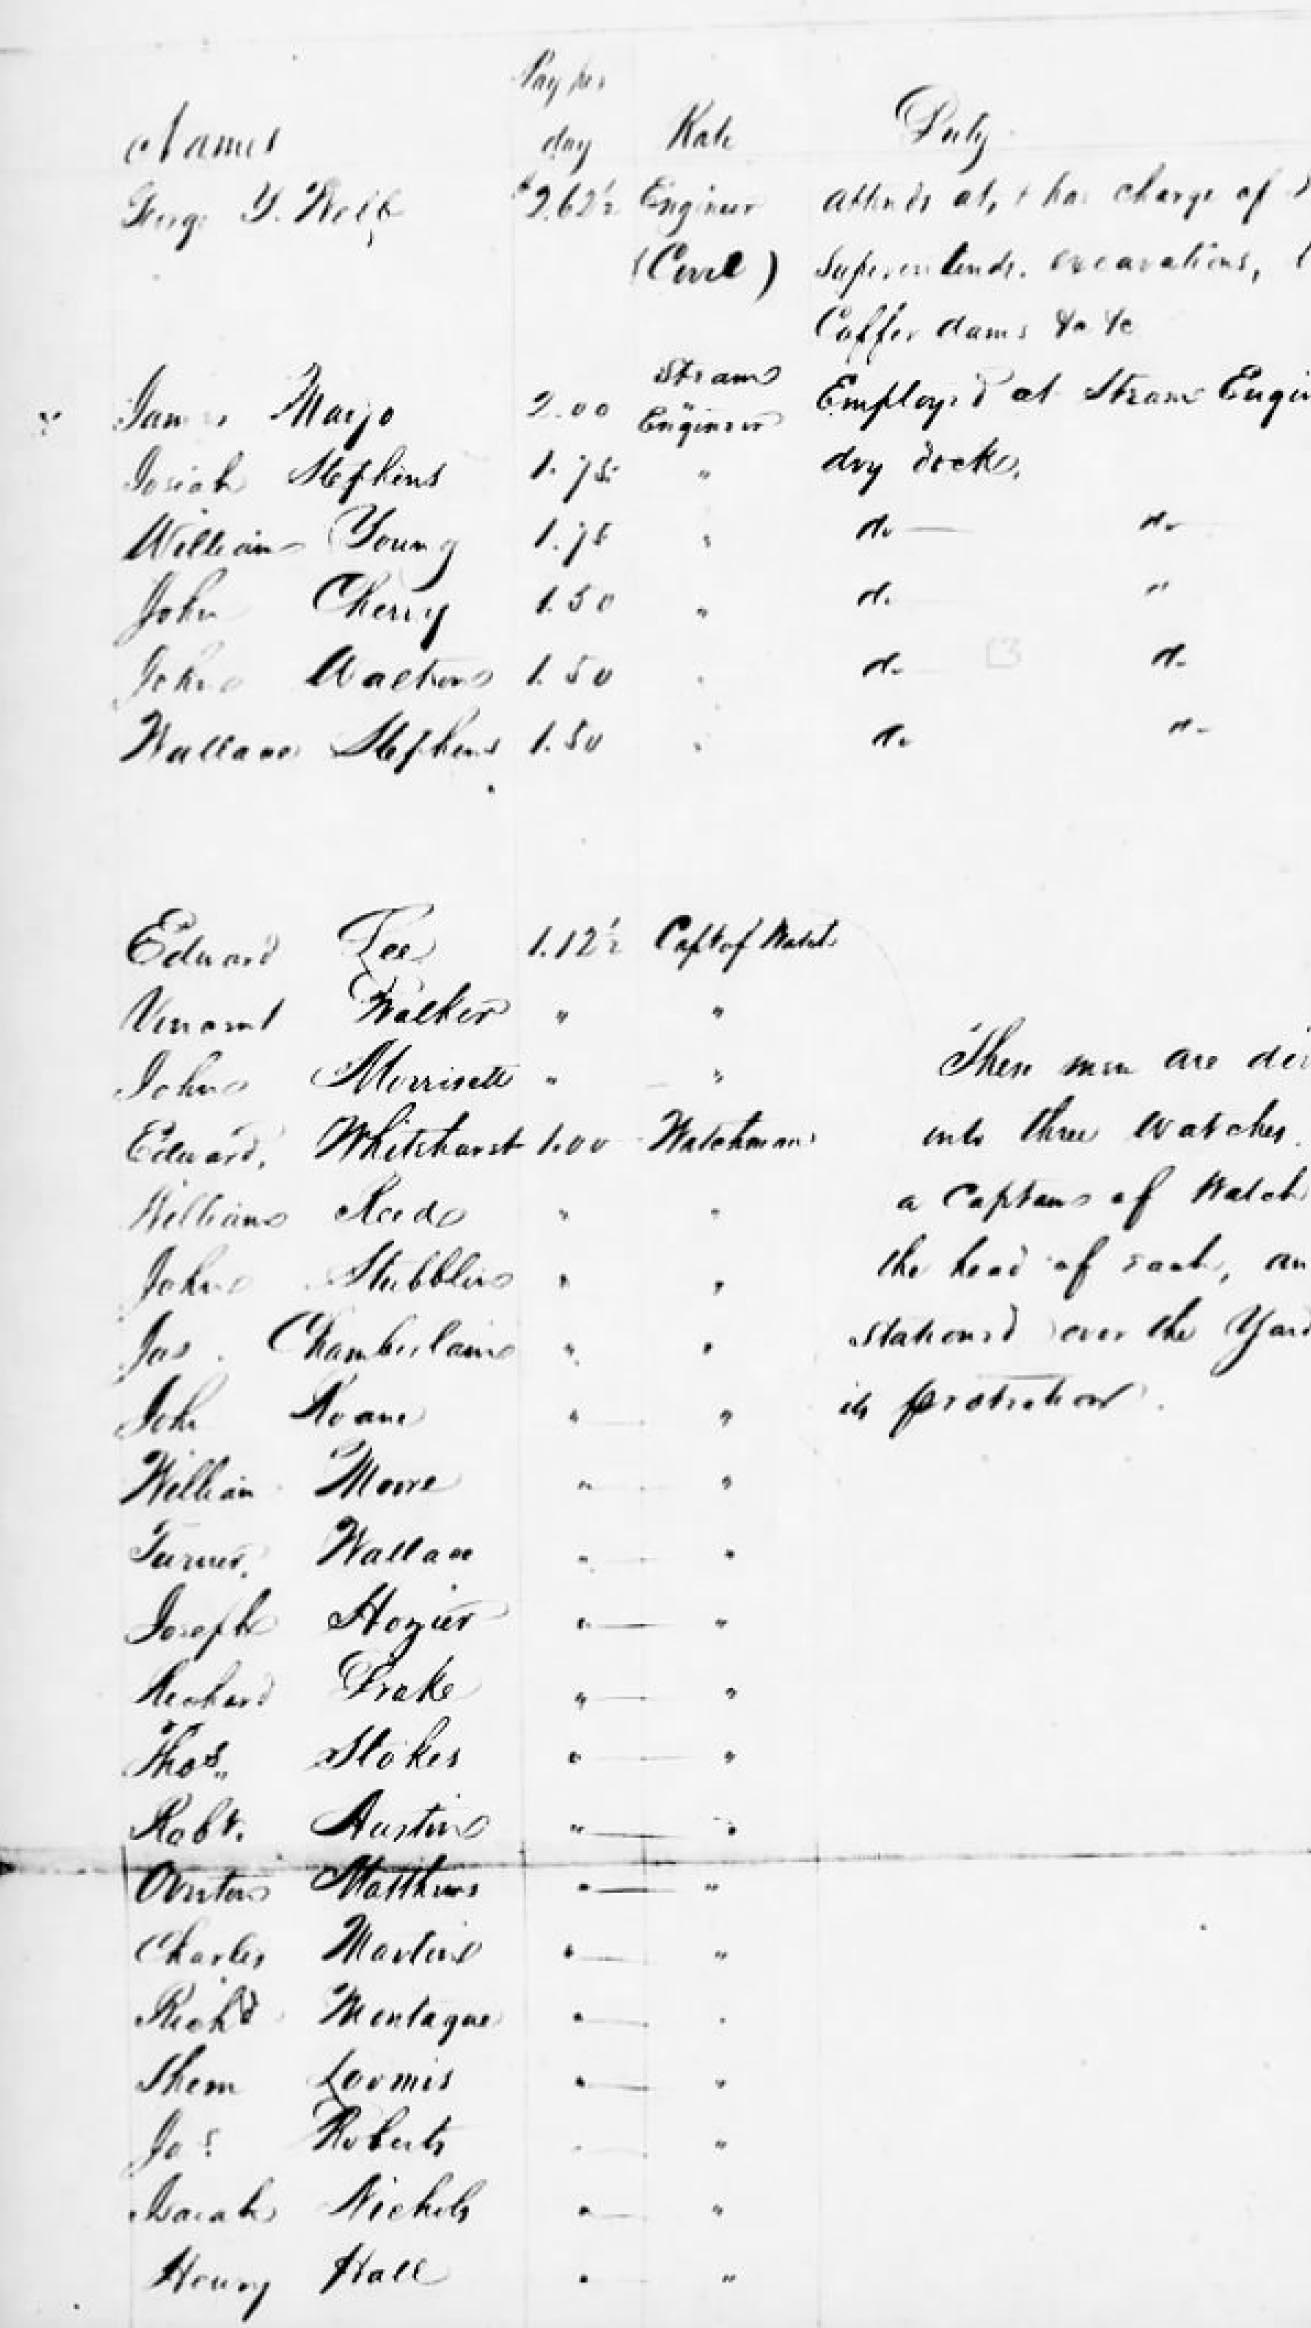 Pay per
Names day Rate Duty
George T. $2.62½ Engineer attends at, & has charge of
(Civil) Superintends. excavations,
Coffer dams &c &c
Steam
James Mayo 2.00 Engineer Employed at Steam Engi
Josiah Stephens 1.75 " dry dock.
William Young 1.75 " do do
John Cherry 1.50 " do "
John Waltron 1.50 " do do
Wallace Stephens 1.50 " do do
Edward Lee 1.12½ Capt of Watch
Vincent Walker " "
John Morrisett " "
These men are div
Edward Whitehurst 1.00 Watchman
into three watches.
William Reed " "
a Captain of Watch
John Stubblin " "
the head of each, an
Jas. Chamberlain " "
Stationed over the Yard
John Roane " "
its protection.
William Moore " "
Turner Wallace " "
Joseph Hozier " "
Richard Drake " "
Thos. Stokes " "
Robt. Austin " "
Overton Matthews " "
Charles Martin " "
Richd Montague " "
Shem Loomis " "
Jos Roberts " "
Isaiah Nichols " "
Henry Hall " "